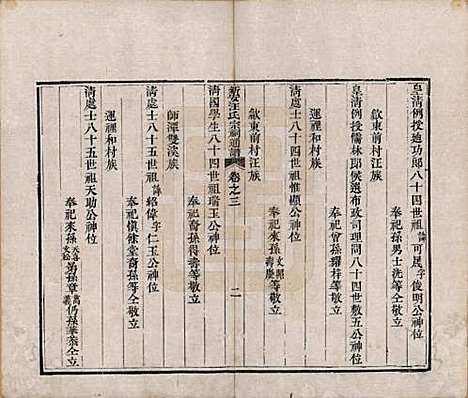 皇清例授迪功郎八十四世祖諱可晟字俊明公神位
奉祀來孫男士洗等仝敬立
歙東前村汪族
皇清例授儒林郎候選布政司理問八十四世敷五公神位
奉祀曾孫耀梓等敬立
歙東前村汪族
清處士八十四世祖惟顯公神位
奉祀來孫等敬立
清國學生八十四世祖瑞玉公神位
奉祀裔孫得濤等敬立
新安汪氏宗祠通譜 卷之三 二
師潭雙溪族
紹偉字仁玉公神位
奉祀俱徐堂裔孫等仝敬立
清處士八十五世祖諱
運裡和村族
運裡和村族
清處士八十五世祖天助公神位
奉祀來孫弟孫章仍孫華泰仝立